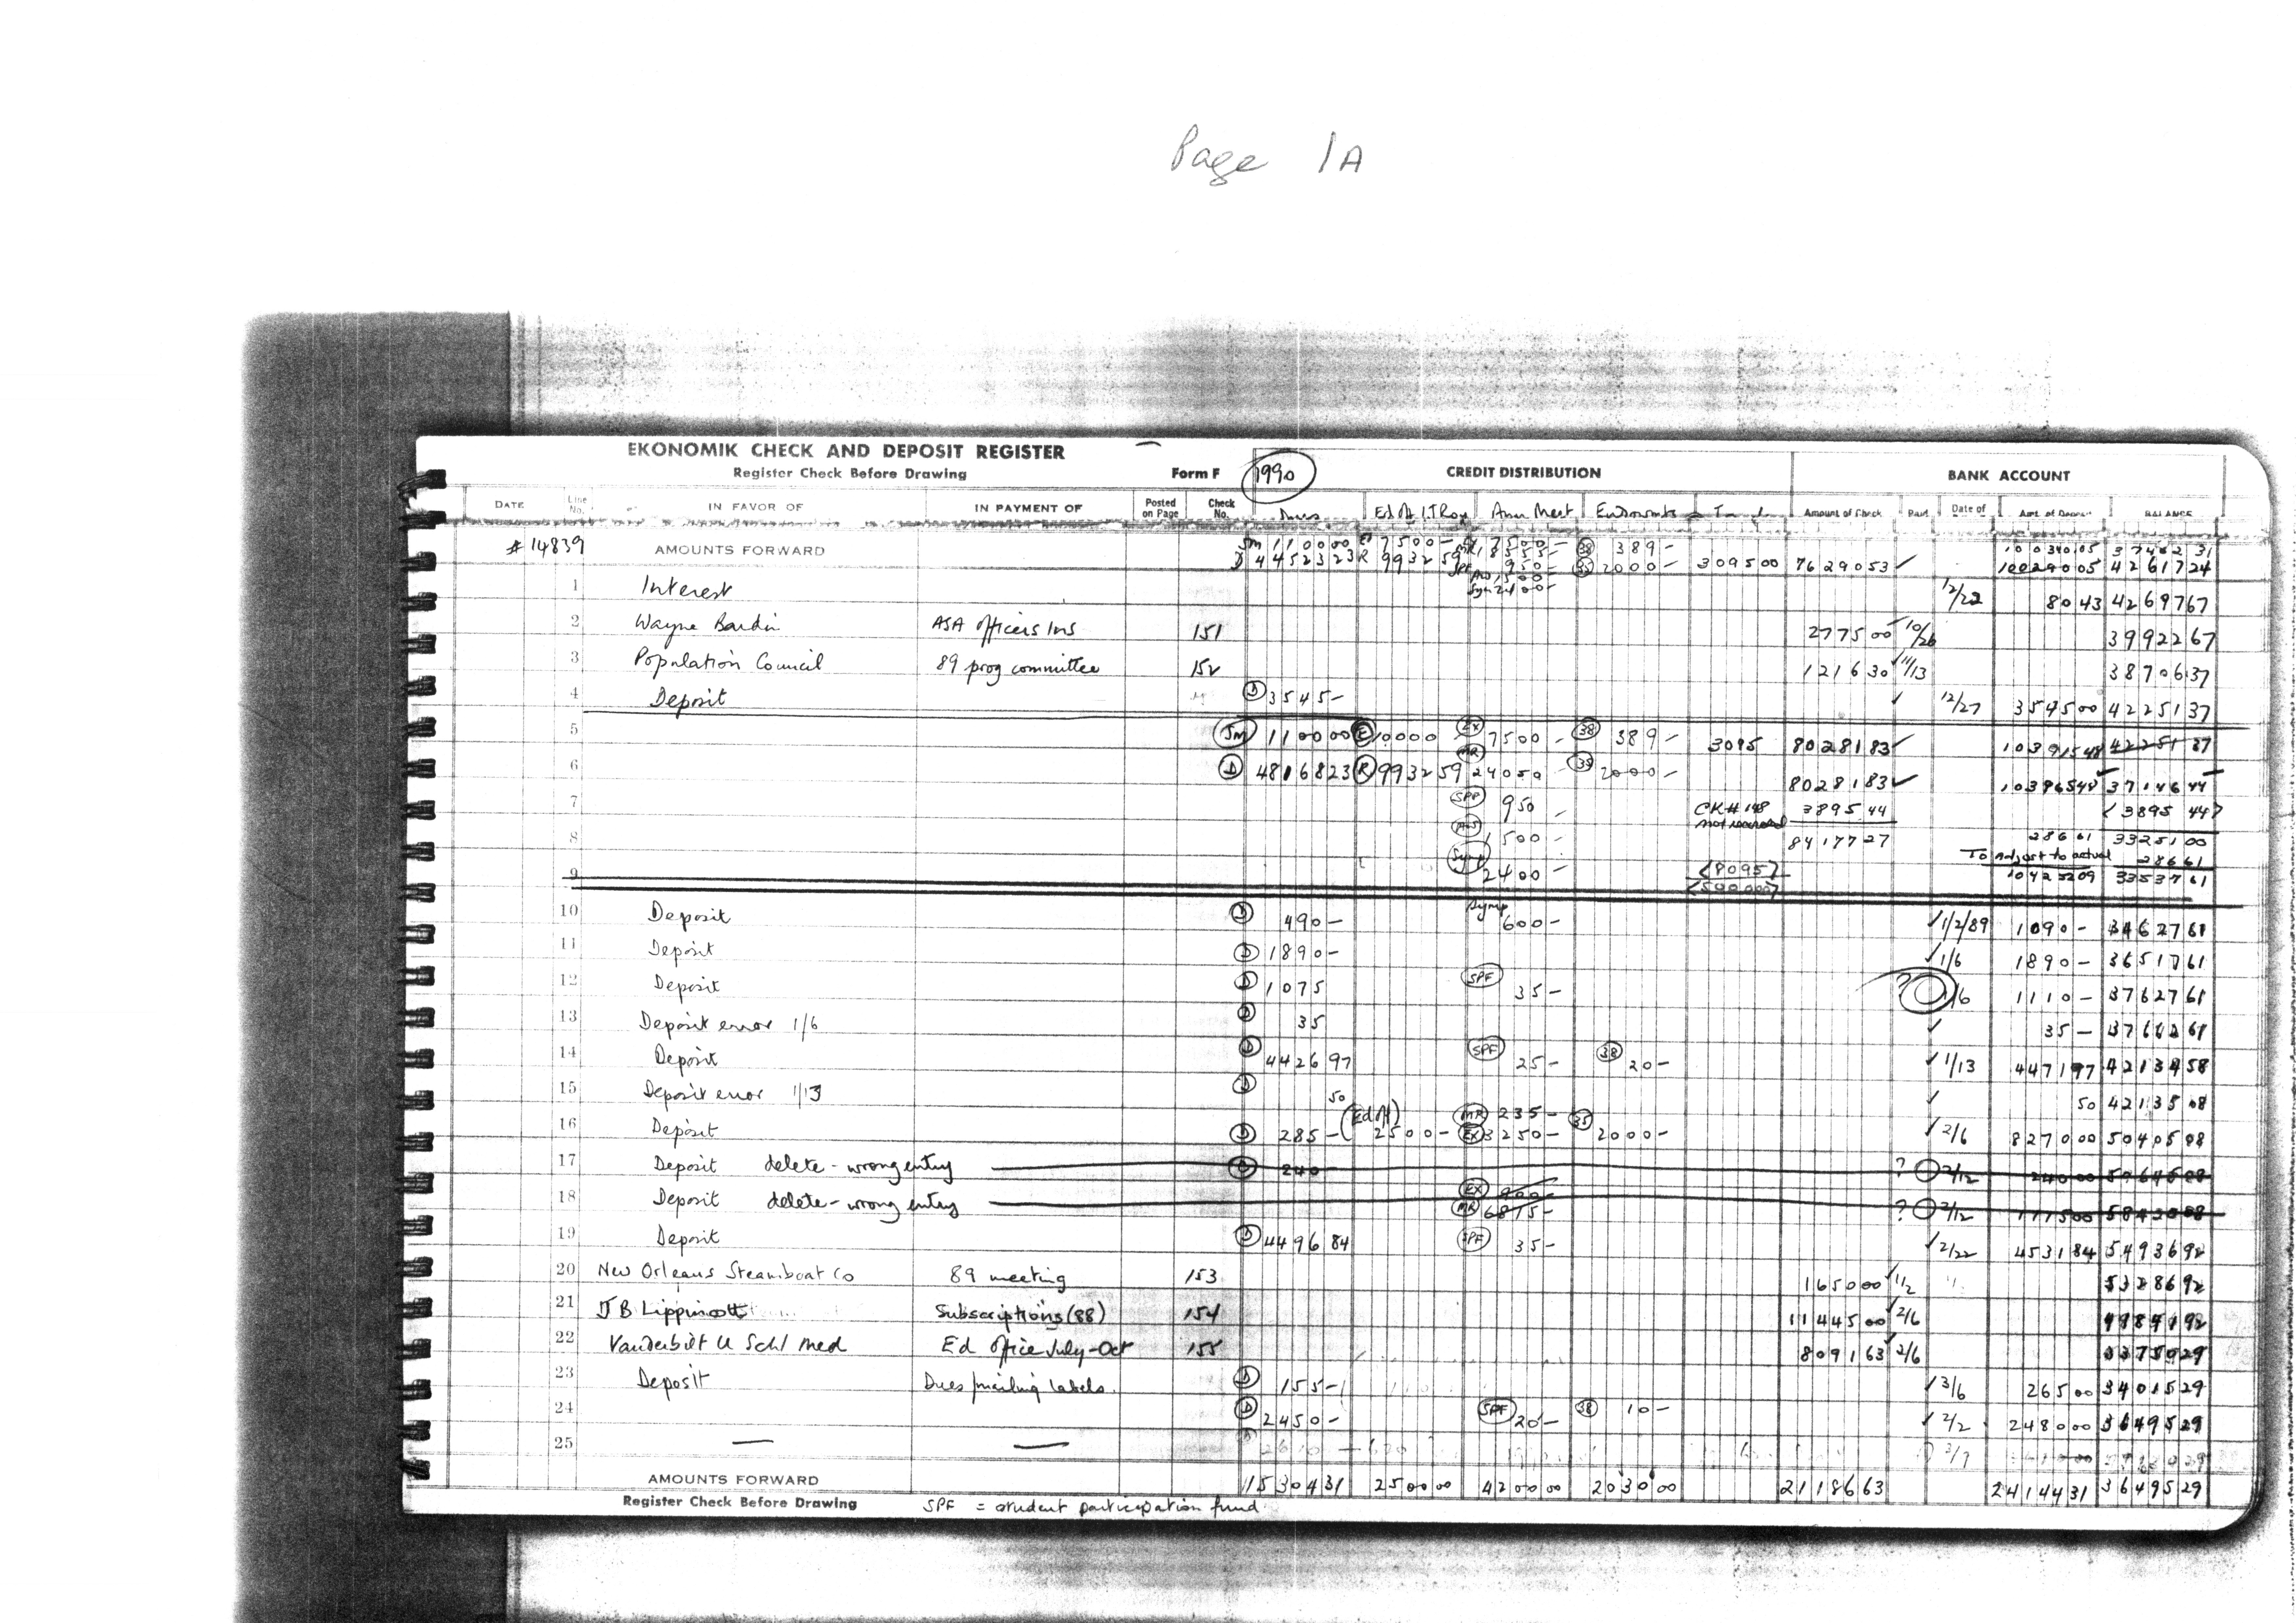 Page 1A
EKONOMIK CHECK AND DEPOSIT REGISTER
Register Check Before Drawing Form F 1990 CREDIT DISTRIBUTION BANK ACCOUNT
DATE Line No. IN FAVOR OF IN PAYMENT OF Posted on Page Check No. Dues Ann Meet Amount of Check Paid Date of BALANCE
#14839 AMOUNTS FORWARD 389- 2000- 309500 7629053 ✓ 4261724
1 Interest 12/22 8043 4269767
2 Wayne Bardin ASA Officers Ins 151 277500 ✓ 10/26 3992267
3 Population Council 89 prog committee 152 121630 ✓ 11/13 3870637
4 Deposit D 3545- ✓ 12/27 354500 4225137
5 Jm 110000 E 10000 EX 7500- 38 389- 3095 8028183 ✓ 10391548 4225137
6 D 4816823 R 993259 MR 24050 35 2000- 8028183 ✓ 10396548 3714644
7 SPF 950- CK#148 not recorded 3895.44 <3895 44>
8 1500- 8417727 28661 3325100
To Adjust to actual 28661
9 Symp 2400- <8095> 10425209 3353761
10 Deposit D 490- Symp 600- ✓ 1/2/89 1090- 3462761
11 Deposit D 1890- ✓ 1/6 1890- 3651761
12 Deposit D 1075 SPF 35- 1/6 1110- 3762761
13 Deposit error 1/6 D 35 ✓ 35-
14 Deposit D 442697 SPF 25- 38 20- ✓ 1/13 447197 4213458
15 Deposit error 1/13 D 50 ✓ 50 4213508
16 Deposit D 285- (Ed Off) 2500- MR 235- EX 3250- 35 2000- ✓ 2/6 827000 5040508
17 Deposit delete - wrong entry D 240 ? 2/12 24000 5064508
18 Deposit delete - wrong entry EX 900 MR 6875- ? 2/12 777500 5842008
19 Deposit D 449684 SPF 35- ✓ 2/22 453184 5493692
20 New Orleans Steamboat Co 89 meeting 153 165000 ✓ 1/2 5328692
21 J B Lippincott Subscriptions (88) 154 1144500 2/6 4184192
22 Vanderbilt U Schl Med Ed Office July-Oct 155 809163 ✓ 2/6 3375029
23 Deposit Dues/mailing labels D 155- ✓ 3/6 26500 3401529
24 D 2450- SPF 20- 38 10- ✓ 2/2 248000 3649529
25 — —
AMOUNTS FORWARD 1530431 250000 420000 203000 2118663 2414431 3649529
Register Check Before Drawing SPF = student participation fund